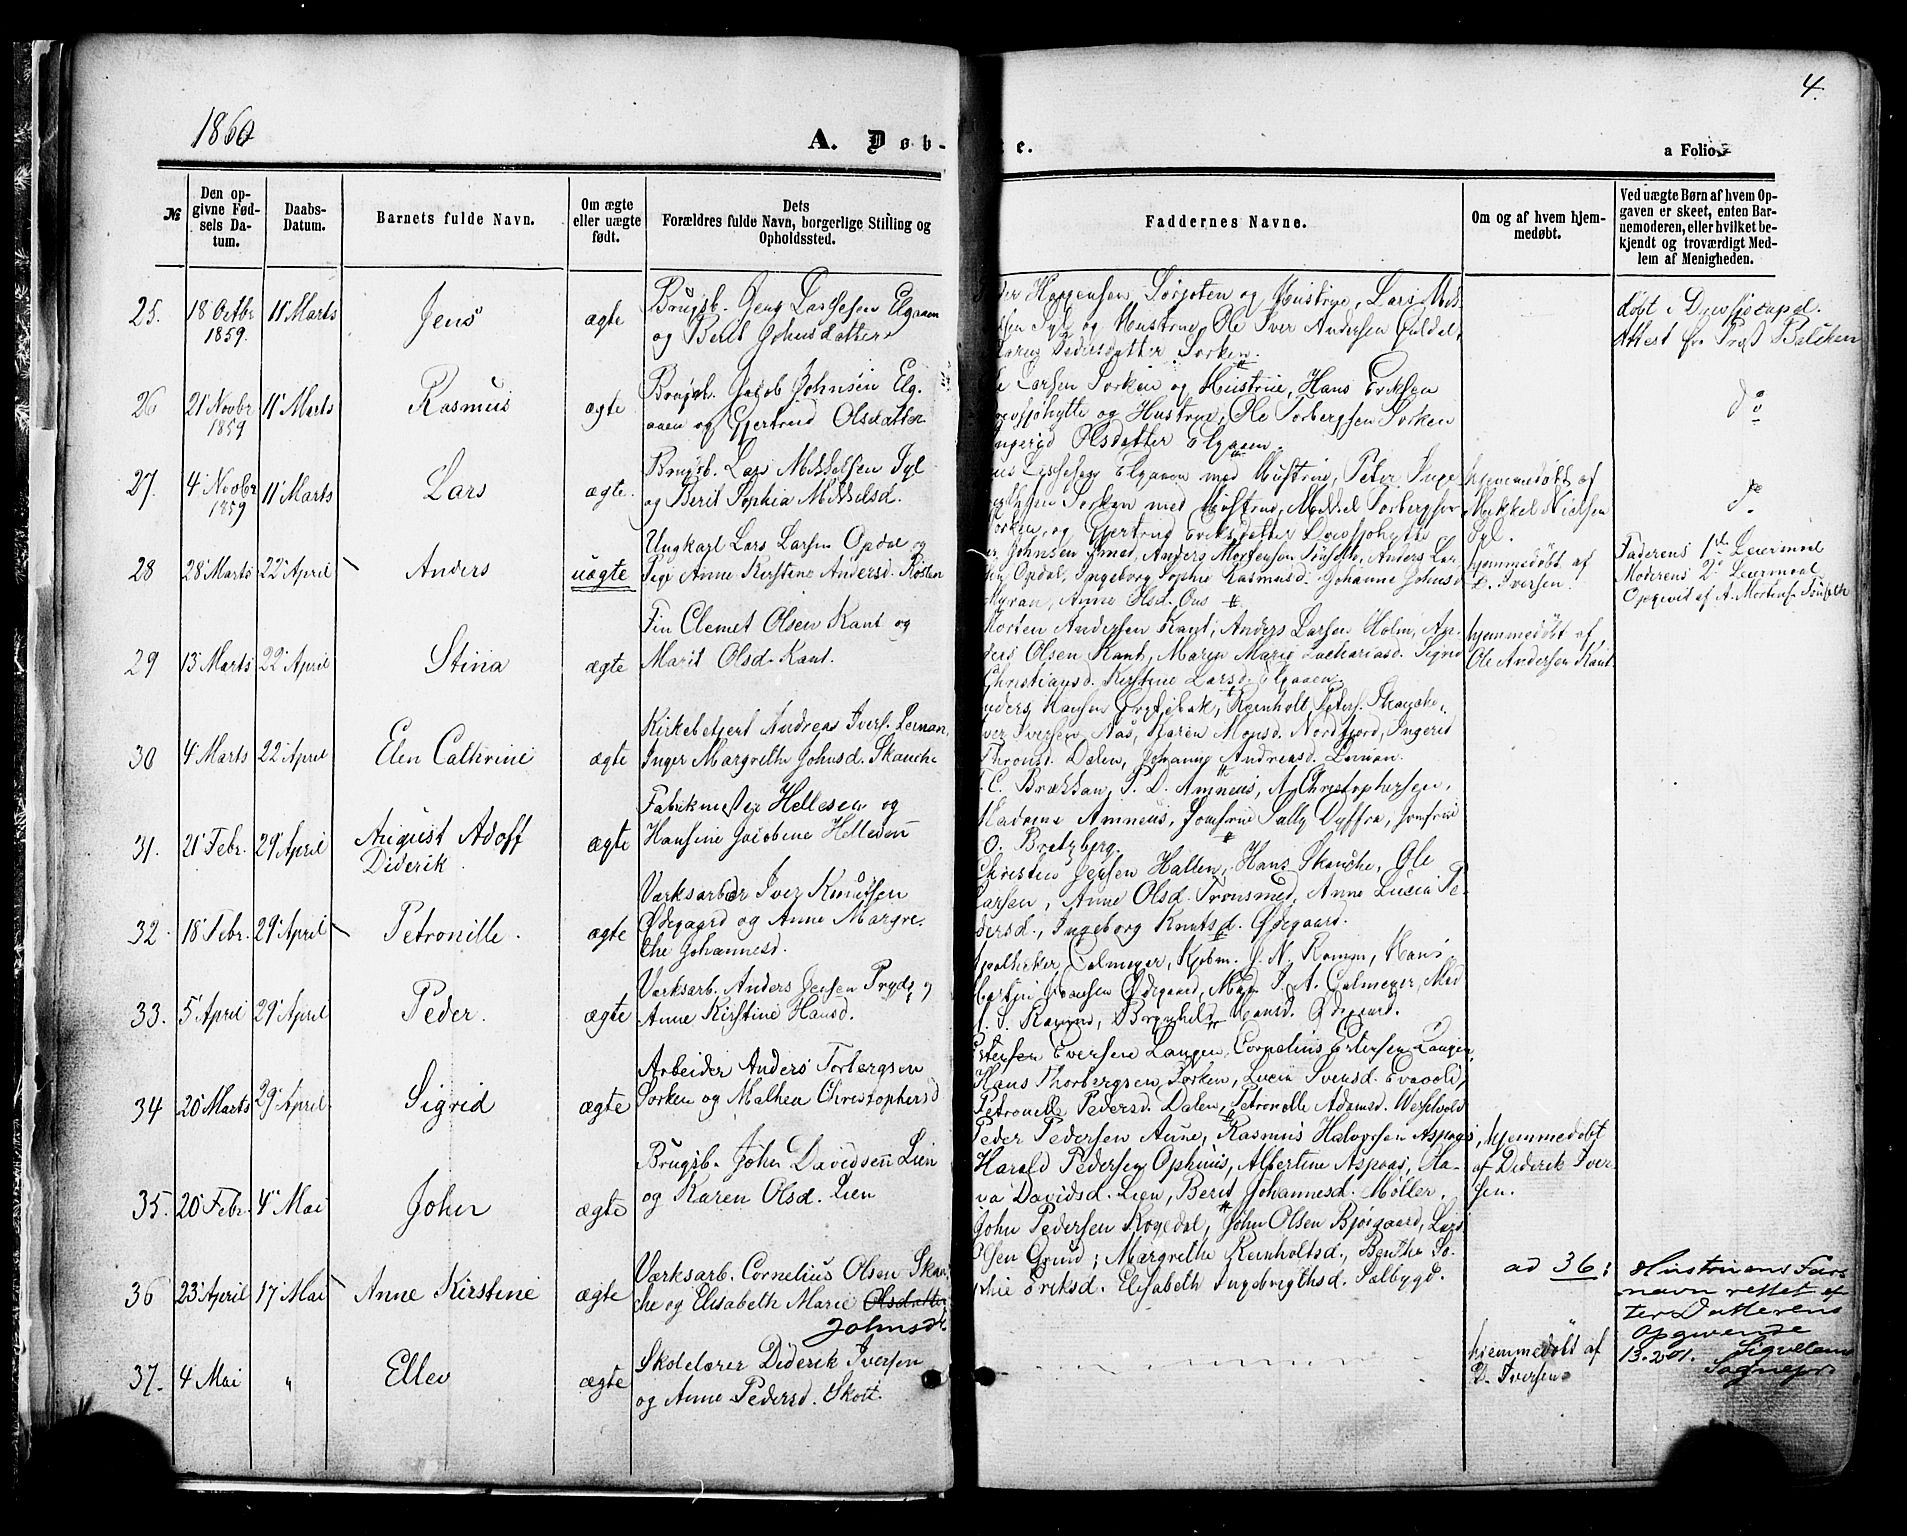 4.
1860
A. Døb-
te.
a Folio
№
Den op-
givne Fød-
sels Da-
tum.
Daabs-
Datum.
Barnets fulde Navn.
Om ægte
eller uægte
født.
Dets
Forældres fulde Navn, borgerlige Stilling og
Opholdssted.
Faddernes Navne.
Om og af hvem hjem-
medøbt.
Ved uægte Børn af hvem Op-
gaven er skeet, enten Bar-
nemoderen, eller hvilket be-
kjendt og troværdigt Med-
lem af Menigheden.
25. 18 Octbr 1859. 11 Marts Jens ægte
Brugsb. Jens Elgaaen
og Berit Johnsdatter
Sorken og Hustrue, Lars Mik-
og Hustrue, Ole Iver Andersen
Pedersdatter Sorken.
døbt i
Attest fra Præst
26 21 Novbr 1859 11 Marts Rasmus ægte
Brugsb. Jacob Johnsen Elg-
aaen og Gjertrud Olsdatter
Larsen Sorken og Hustrue, Hans Eriksen
og Hustrue, Ole Torbergsen Sorken
Ingerid Olsdatter Elgaaen.
do
27. 4 Novbr 1859 11 Marts Lars ægte.
Brugsb. Lars Mikkelsen Syl
og Berit Sophia Mikkelsd.
Elgaaen med Hustrue, Peter Inge-
Sorken med Hustrue, Mikkel Torbergsen
Sorken, og Gjertrud Eriksdatter
hjemmedøbt af
Mykkel Nielsen
Syl.
do
28 28 Marts 22 April Anders uægte
Ungkarl Lars Larsen Opdal og
Pige Anne Kirstine Andersd.
Johnsen Smed, Anders Mortensen, Anders Lar-
sen Opdal, Ingeborg Sophie Rasmusd. Johanne Johnsd
Myran, Anne Olsd. Ous #
hjemmedøbt af
D. Iversen.
Faderens 1ste Leiermaal
Moderens 2de Leiermaal
Opgivet af A. Mortensen
29 13 Marts 22 April Stina ægte
Fin Clemet Olsen Kant og
Marit Olsd. Kant.
Morten Andersen Kant, Anders Larsen Holm, An-
ders Olsen Kant, Maren Marie Zachariasd. Sigrid
Christiansd. Kirstine Larsd. Elgaaen
hjemmedøbt af
Ole Andersen Kant
30 4 Marts 22 April Elen Cathrine ægte
Kirkebetjent Andreas Ivers. Leinan,
Inger Margrethe Johnsd. Skanche
Anders Hansen, Reinholt Peters. Skanche,
Iver Iversen Aas, Karen Monsd. Nordfjord, Ingerid
Dalen, Johanne Andreasd. Leinan.
31. 21 Febr. 29 April August Adolf
Diderik. ægte
Fabrikmester Hellesen og
Hansine Jacobine Hellesen
C. Brækkan, P. D. Amneus, A. Christophersen,
Madame Amneus, Jomfrue Sally Dyffre, Jomfrue
O. Bretzberg.
32. 18 Febr. 29 April Petronille. ægte
Værksarbeider Iver Knutsen
Ødegaard og Anne Margre-
the Johannesd.
Christen Jensen Hallen, Hans Skanche, Ole
Larsen, Anne Olsd. Tronsmed, Anne Lucia Pe-
dersd., Ingeborg Knutsd. Ødegaard.
33. 5 April 29 April Peder. ægte
Værksarb. Anders Jensen Pryds og
Anne Kirstine Hansd.
Apotheker Calmeyer, Kjøbm. J. N. Ramm, Hans
Martin Hansen Ødegaard, Mad. J. A. Calmeyer, Mad
Ramm, Hansd. Ødegaard.
34 20 Marts 29 April Sigrid ægte
Arbeider Anders Torbergsen
Sorken og Malhea Christophersd
Estensen Iversen Langen, Cornelius Estensen Langen,
Hans Thorbergsen Sorken, Lucia Svensd. Evavold,
Petronelle Pedersd. Dalen, Petronelle Adamsd. Wesselvold
35. 20 Febr. 4 Mai John ægte
Brugsb. John Davidsen Lien
og Karen Olsd. Lien
Peder Pedersen Aune, Rasmus Halvorsen Aspaas,
Harald Pedersen Ophuus, Albertine Aspaas, Ma-
Davidsd. Lien, Berit Johannesd. Møller.
hjemmedøbt
af Diderik Iver-
sen.
36 23 April 17 Mai Anne Kirstine ægte
Værksarb. Cornelius Olsen Skan-
che og Elisabeth Marie Olsdatter
Johnsdr
John Pedersen Kogedal, John Olsen Bjørgaard, Lars
Olsen Grind, Margrethe Reinholtsd., Benthe So-
phie Eriksd. Elisabeth Ingebrigthsd. Salbygd.
ad 36:
Hustruens Fars-
navn rettet ef-
ter Datterens
Opgivende
13.2.01.
Sognepr.
37. 4 Mai " Ellev ægte
Skolelærer Diderik Iversen
og Anne Pedersd. Skott.
hjemmedøbt af
D. Iversen